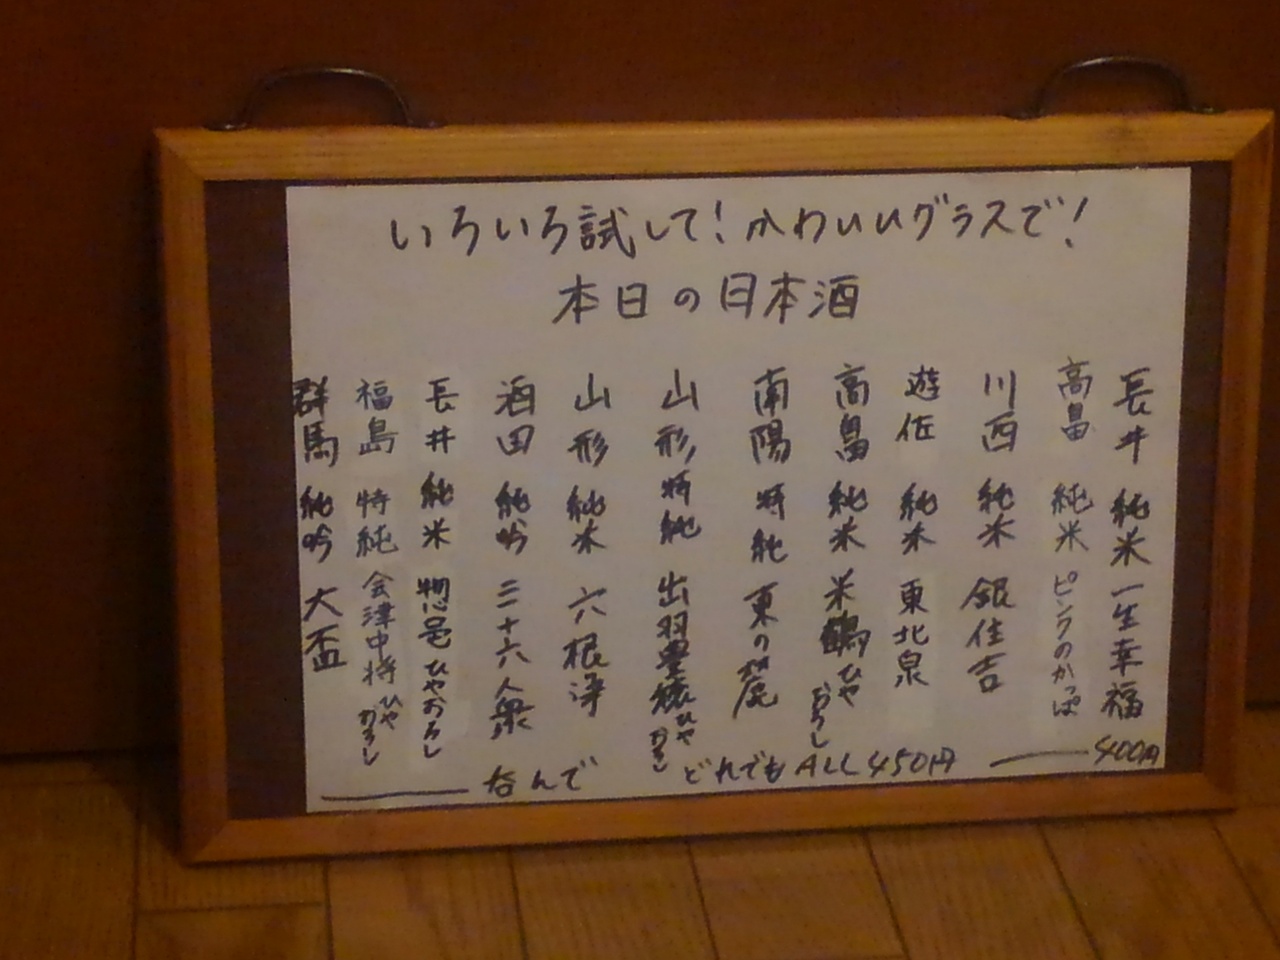 いろいろ試して！かわいいグラスで！
本日の日本酒
長井 純米 一生幸福 400円
高畠 純米 ピンラのかっぱ
川西 純米 銀住吉
遊佐 純米 東北泉
高畠 純米 米鶴 ひやおろし
南陽 特純 東の麓
山形 特純 出羽豊穣 ひやおろし
山形 純米 六根浄
酒田 純吟 三十六人衆
長井 純米 惣邑 ひやおろし
福島 特純 会津中将 ひやおろし
群馬 純吟 大盃
どれでも ALL 450円
呑んで